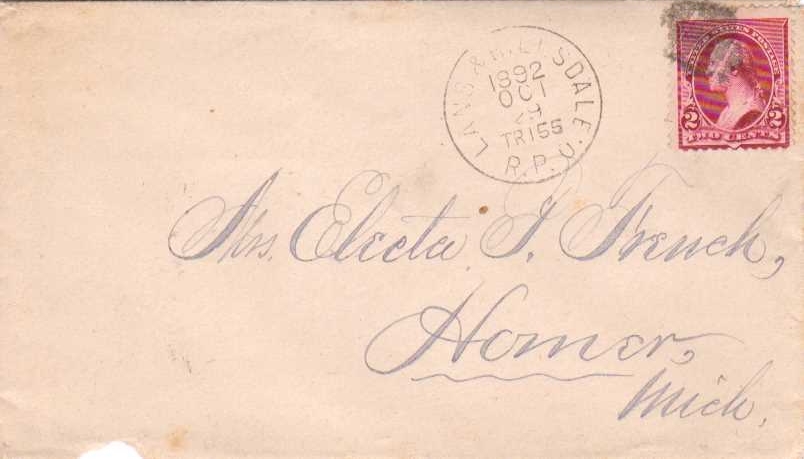 LANS & HILLSDALE.
R.P.O.
1892
OCT
29
TR155
UNITED STATES POSTAGE
2 2
TWO CENTS
Mrs. Electa J. French,
Homer,
Mich.